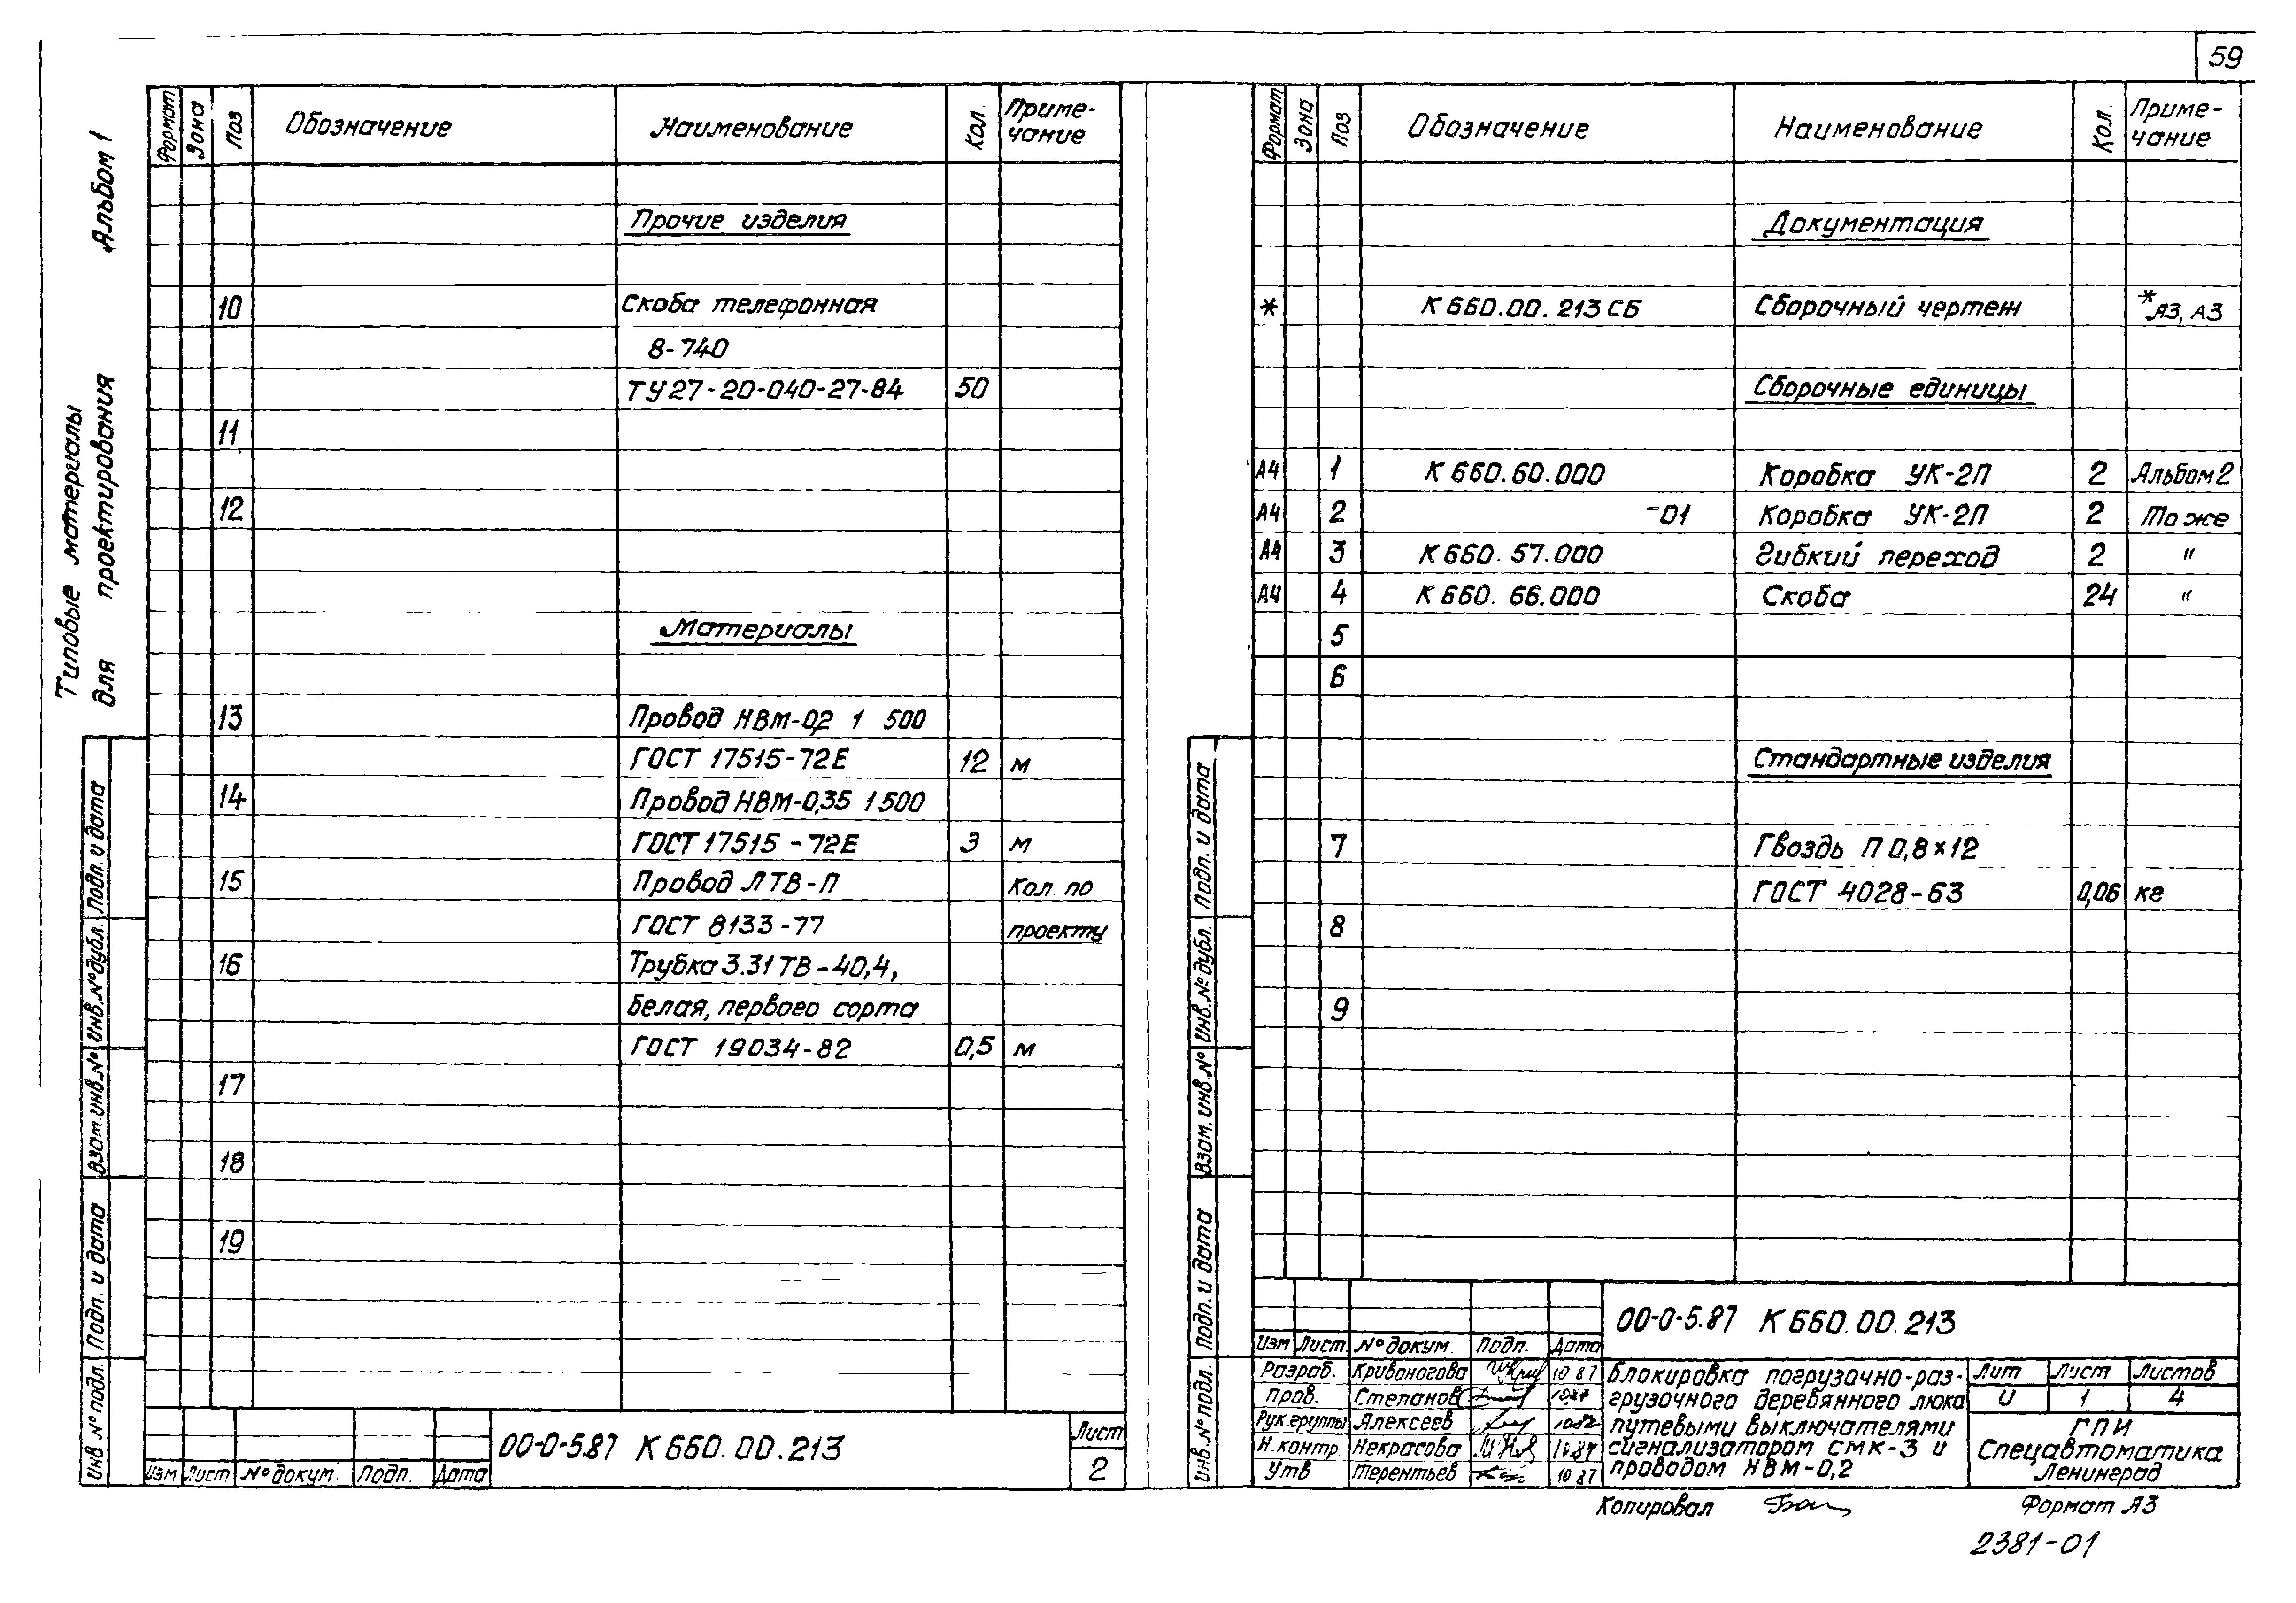 59
Альбом 1
Типовые материалы
для проектирования
Формат Зона Поз Обозначение Наименование Кол. Приме-
чание
Прочие изделия
10 Скоба телефонная
8-740
ТУ27-20-040-27-84 50
11
12
Материалы
13 Провод НВМ-0,2 1 500
ГОСТ 17515-72Е 12 м
14 Провод НВМ-0,35 1 500
ГОСТ 17515-72Е 3 м
15 Провод ЛТВ-П Кол. по
ГОСТ 8133-77 проекту
16 Трубка 3.31 ТВ-40,4,
белая, первого сорта
ГОСТ 19034-82 0,5 м
17
18
19
Инв № подл. Подп. и дата Взам. инв. № Инв. № дубл. Подп. и дата
Изм Лист № докум. Подп. Дата
00-0-5.87 К 660.00.213
Лист
2
Формат Зона Поз Обозначение Наименование Кол. Приме-
чание
Документация
* К 660.00.213 СБ Сборочный чертеж * А3, А3
Сборочные единицы
А4 1 К 660.60.000 Коробка УК-2П 2 Альбом 2
А4 2 -01 Коробка УК-2П 2 То же
А4 3 К 660.57.000 Гибкий переход 2 "
А4 4 К 660.66.000 Скоба 24 "
5
6
Стандартные изделия
7 Гвоздь П 0,8×12
ГОСТ 4028-63 0,06 кг
8
9
Инв. № подл. Подп. и дата Взам. инв. № Инв. № дубл. Подп. и дата
00-0-5.87 К 660.00.213
Изм Лист № докум. Подп. Дата
Разраб. Кривоногова 10.87
Пров. Степанов 10.87
Рук.группы Алексеев
Н.контр. Некрасова
Утв Терентьев 10.87
Блокировка погрузочно-раз-
грузочного деревянного люка
путевыми выключателями
сигнализатором СМК-3 и
проводом НВМ-0,2
Лит Лист Листов
И 1 4
ГПИ
Спецавтоматика
Ленинград
Копировал
Формат А3
2381-01